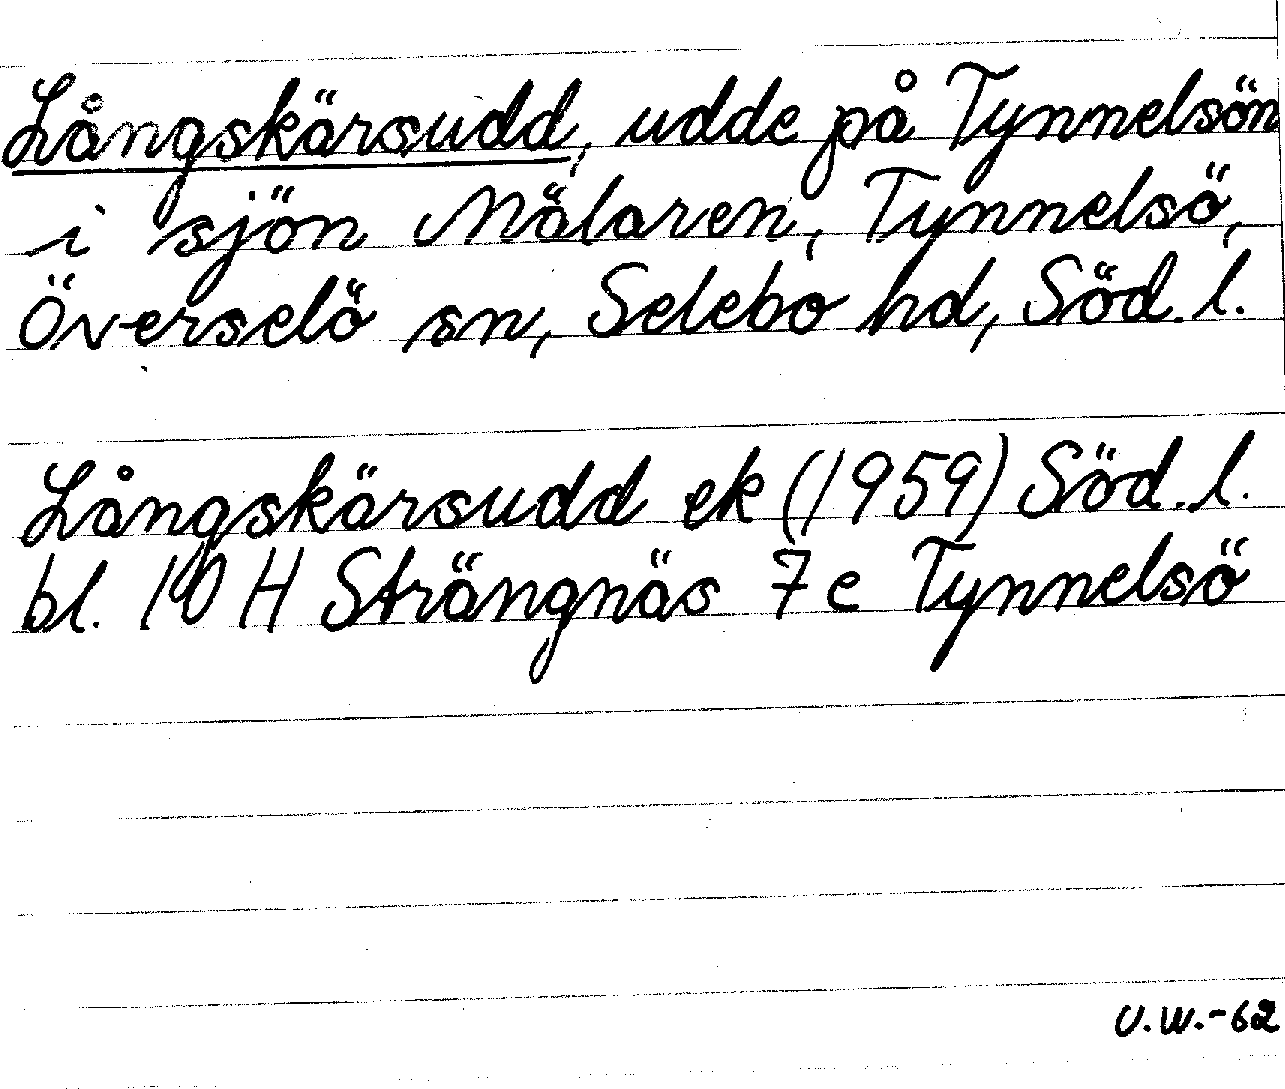 Långskärsudd, udde på Tynnelsön
i sjön Mälaren, Tynnelsö,
Överselö sn, Selebo hd, Söd. l.
Långskärsudd ek (1959) Söd. l.
bl. 10 H Strängnäs 7 e Tynnelsö
U.W.-62